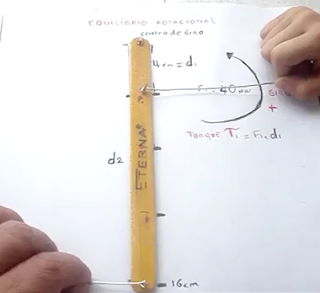 EQUILÍBRIO ROTACIONAL
centro de GIRO
4cm = d₁
F₁ = 40
GIRO
+
TORQUE T₁ = F₁ . d₁
d2
ETERNA
16cm